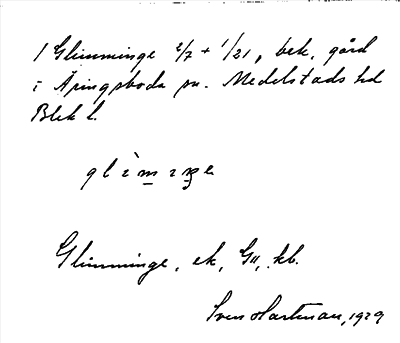 1 Glimminge 2/7 + 1/21, bek. gård
i Äringsboda sn. Medelstads hd
Blek l.
Glimminge, ek, G11, kb.
Sven Hartman, 1929